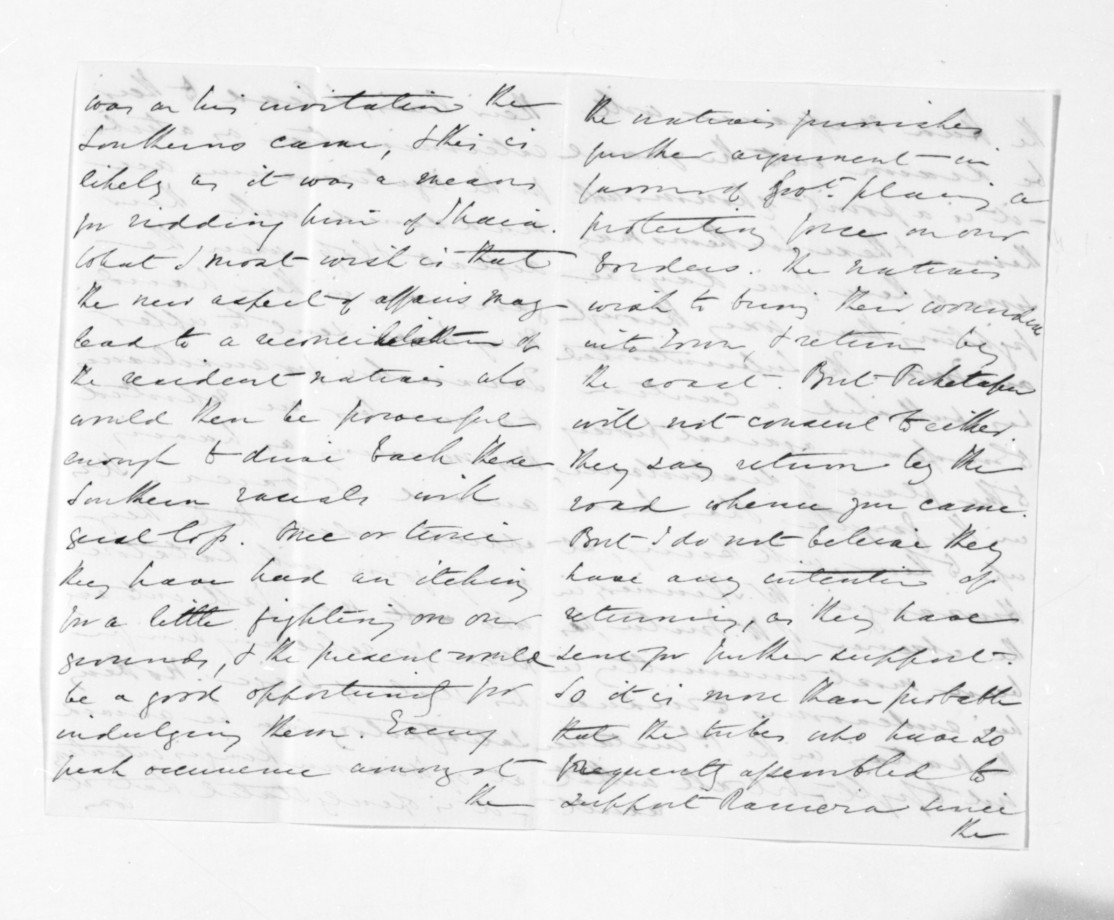 was on his invitation the
Southerns came, & this is
likely as it was a means
for ridding him of Ihaia.
What I most wish is that
the new aspect of affairs may
lead to a reconciliation of
the resident natives who
would then be powerful
enough to drive back these
Southern rascals with
great loss. Once or twice
they have had an itching
for a little fighting on our
grounds, & the present would
be a good opportunity for
indulging them. Every
fresh occurrence amongst
the
the natives furnishes
further argument in
favour of Govt. placing a
protecting force on our
borders. The natives
wish to bring their wounded
into Town & return by
the coast. But Puketapu
will not consent to either
they say return by the
road whence you came.
But I do not believe they
have any intention of
returning, as they have
sent for further support.
So it is more than probable
that the tribes who have so
frequently assembled to
support Rawiri's since
the